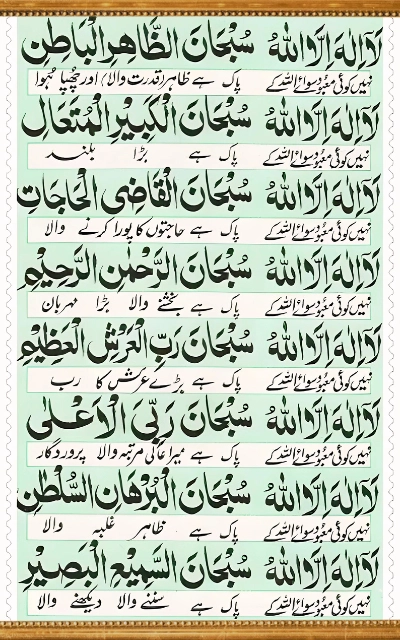 لَآ اِلٰهَ اِلَّا اللّٰهُ سُبْحَانَ الظَّاهِرِ الْبَاطِنِ
نہیں کوئی معبود سوائے اللہ کے پاک ہے ظاہر (قدرت والا) اور چھپا ہوا
لَآ اِلٰهَ اِلَّا اللّٰهُ سُبْحَانَ الْكَبِيْرِ الْمُتَعَالِ
نہیں کوئی معبود سوائے اللہ کے پاک ہے بڑا بلند
لَآ اِلٰهَ اِلَّا اللّٰهُ سُبْحَانَ الْقَاضِى الْحَاجَاتِ
نہیں کوئی معبود سوائے اللہ کے پاک ہے حاجتوں کا پورا کرنے والا
لَآ اِلٰهَ اِلَّا اللّٰهُ سُبْحَانَ الرَّحْمٰنِ الرَّحِيْمِ
نہیں کوئی معبود سوائے اللہ کے پاک ہے بخشنے والا بڑا مہربان
لَآ اِلٰهَ اِلَّا اللّٰهُ سُبْحَانَ رَبِّ الْعَرْشِ الْعَظِيْمِ
نہیں کوئی معبود سوائے اللہ کے پاک ہے بڑے عرش کا رب
لَآ اِلٰهَ اِلَّا اللّٰهُ سُبْحَانَ رَبِّىَ الْاَعْلٰى
نہیں کوئی معبود سوائے اللہ کے پاک ہے میرا عالی مرتبہ والا پروردگار
لَآ اِلٰهَ اِلَّا اللّٰهُ سُبْحَانَ الْبُرْهَانِ السُّلْطٰنِ
نہیں کوئی معبود سوائے اللہ کے پاک ہے ظاہر غلبہ والا
لَآ اِلٰهَ اِلَّا اللّٰهُ سُبْحَانَ السَّمِيْعِ الْبَصِيْرِ
نہیں کوئی معبود سوائے اللہ کے پاک ہے سننے والا دیکھنے والا